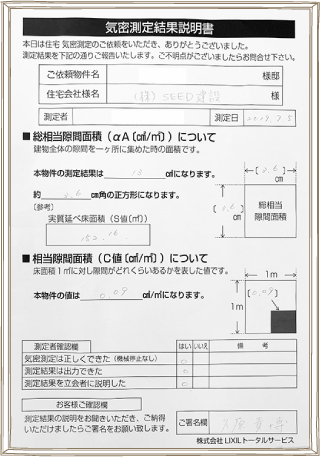 気密測定結果説明書
本日は住宅 気密測定のご依頼をいただき、ありがとうございました。
測定結果を下記の通りご報告いたします。ご不明点がございましたらお問合せ下さい。
ご依頼物件名 様邸
住宅会社様名 (株) SEED建設 様
測定者 測定日
■ 総相当隙間面積（αA〔㎠/㎡〕）について
建物全体の隙間を一ヶ所に集めた時の面積です。
本物件の測定結果は 14 ㎠になります。
約 ㎝角の正方形になります。
㎝
㎝
総相当
隙間面積
〔参考〕
実質延べ床面積（S値〔㎡〕）
152.16
■ 相当隙間面積（C値〔㎠/㎡〕）について
床面積1㎡に対し隙間がどれくらいあるかを表した値です。
本物件の値は 0.09 ㎠/㎡になります。
1m
1m
〔0.09〕
測定者確認欄 はい いいえ 備 考
気密測定は正しくできた（機械停止なし） ○
測定結果は出力できた ○
測定結果を立会者に説明した ○
お客様ご確認欄
測定結果の説明をお聞きいただき、ご納得
いただけましたらご署名をお願い致します。
ご署名欄
株式会社 LIXILトータルサービス